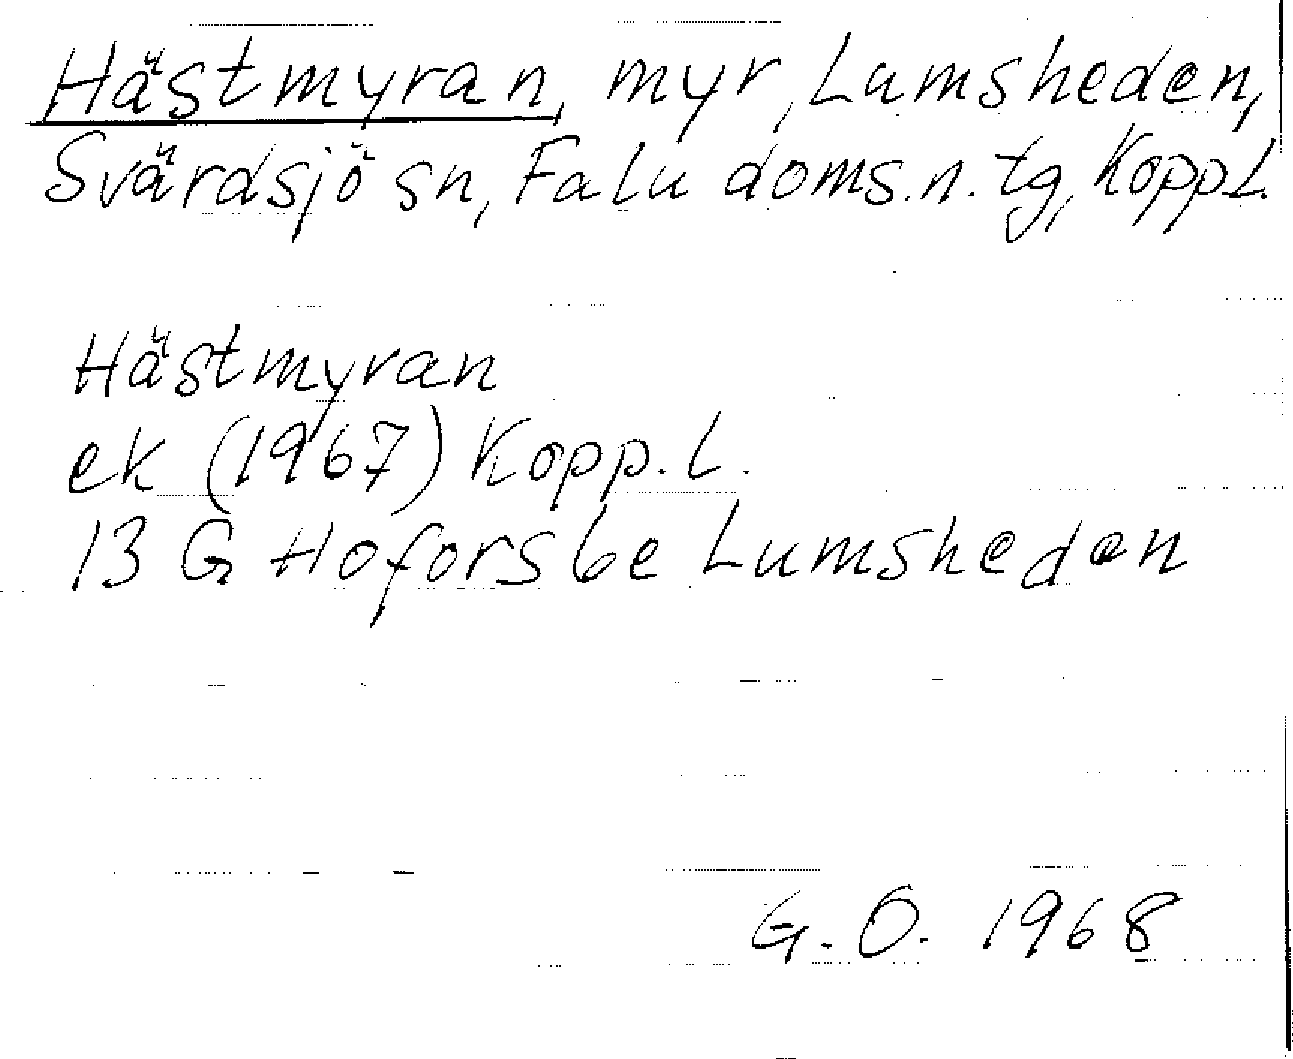 Hästmyran, myr, Lumsheden,
Svärdsjö sn, Falu doms.n.tg, Kopp.l.
Hästmyran
ek (1967) Kopp.l.
13 G Hofors 6e Lumsheden
G.O. 1968